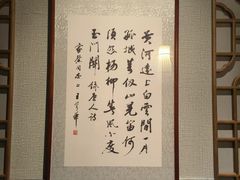 黄河遠上白雲間一片
孤城萬仞山羌笛何
須怨楊柳春風不度
玉門關 録唐人詩